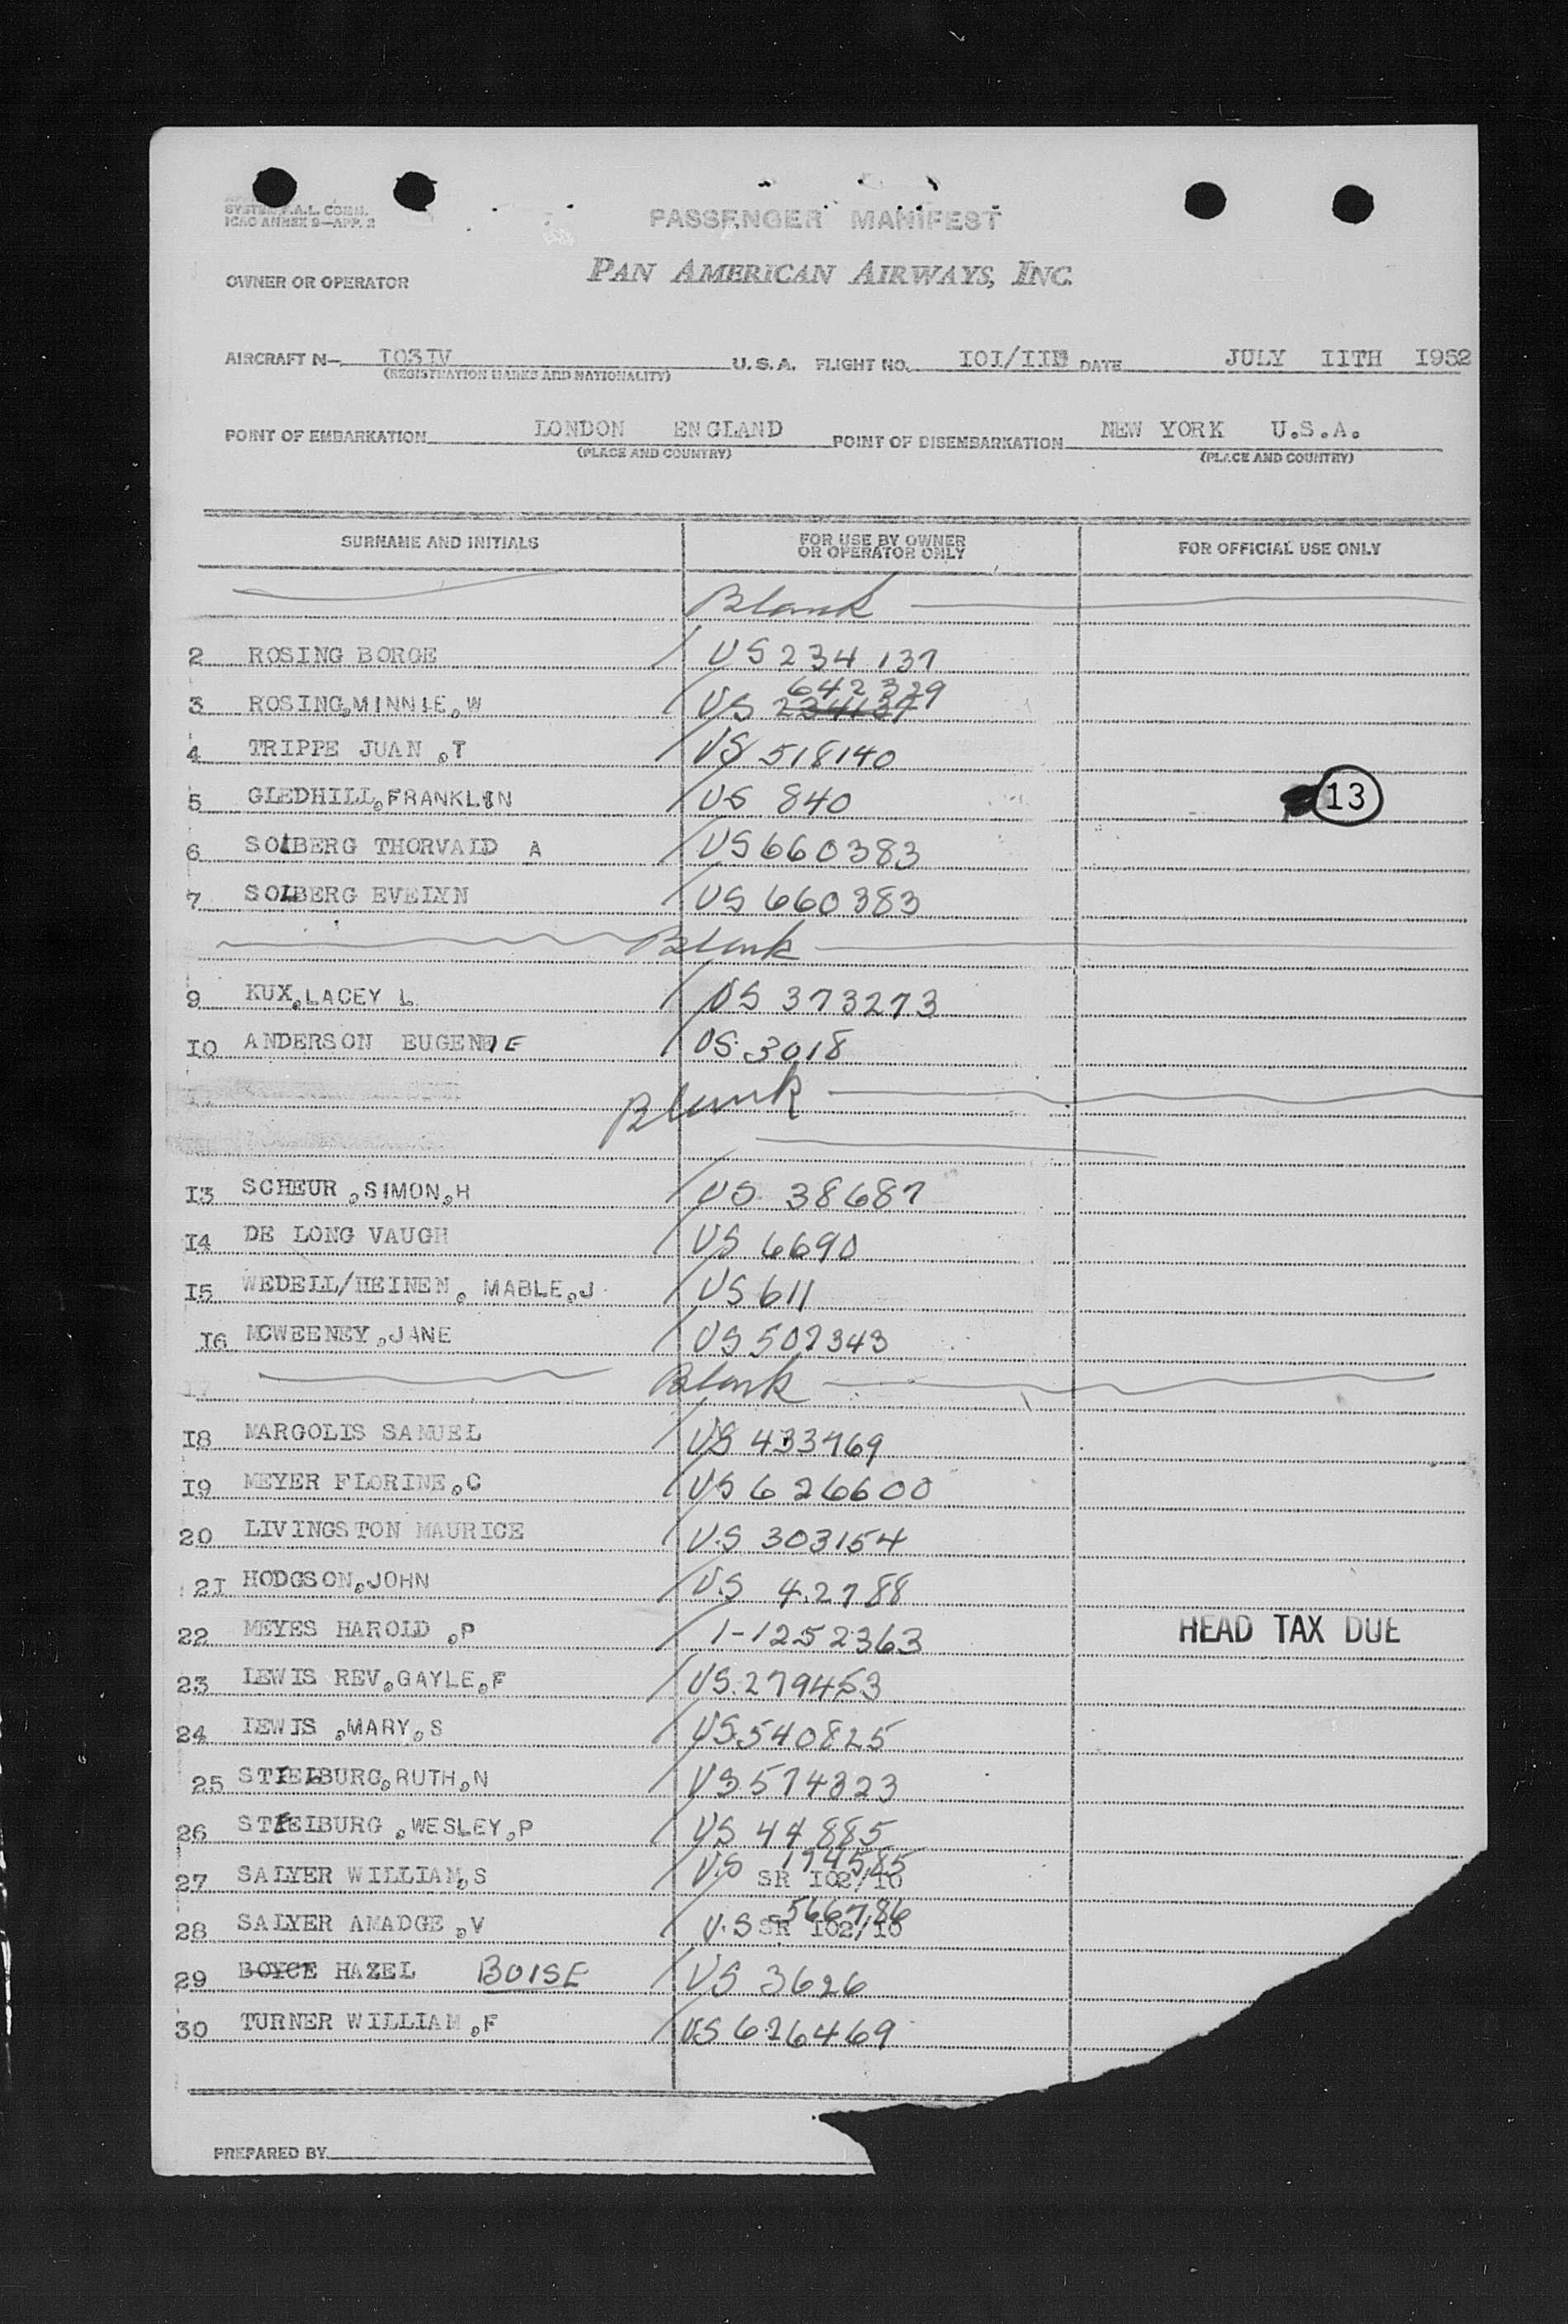 SYSTEM F.A.L. COMM.
ICAO ANNEX 9—APP. 2
PASSENGER MANIFEST
OWNER OR OPERATOR PAN AMERICAN AIRWAYS, INC.
AIRCRAFT N— I03IV U.S.A. FLIGHT NO. I0I/IIE DATE JULY IITH I952
(REGISTRATION MARKS AND NATIONALITY)
POINT OF EMBARKATION LONDON ENGLAND POINT OF DISEMBARKATION NEW YORK U.S.A.
(PLACE AND COUNTRY) (PLACE AND COUNTRY)
SURNAME AND INITIALS FOR USE BY OWNER OR OPERATOR ONLY FOR OFFICIAL USE ONLY
Blank
2 ROSING BORGE / US 234137
642329
3 ROSING,MINNIE,W / US 234137
4 TRIPPE JUAN ,T / US 518140
5 GLEDHILL,FRANKLIN / US 840 13
6 SOLBERG THORVALD A / US 660383
7 SOLBERG EVELYN / US 660383
Blank
9 KUX,LACEY L / US 373273
I0 ANDERSON EUGENIE / US 3018
Blank
I3 SCHEUR ,SIMON,H / US 38687
I4 DE LONG VAUGH / US 6690
I5 WEDELL/HEINEN, MABLE,J / US 611
I6 MCWEENEY,JANE / US 507343
I7 Blank
I8 MARGOLIS SAMUEL / US 433769
I9 MEYER FLORINE,C / US 626600
20 LIVINGSTON MAURICE / U.S 303154
2I HODGSON,JOHN / U.S 42788
22 MEYES HAROLD ,P / 1-1252363 HEAD TAX DUE
23 LEWIS REV,GAYLE,F / US.279453
24 LEWIS ,MARY,S / US.540825
25 STEELBURG,RUTH,N / US 574323
26 STEELBURG ,WESLEY,P / US 44885
27 SALYER WILLIAM,S / U.S 174585
SR I02/I0
28 SALYER AMADGE ,V / U.S 566786
SR I02/I0
29 BOYCE HAZEL BOISE / US 3626
30 TURNER WILLIAM ,F / US 626469
PREPARED BY